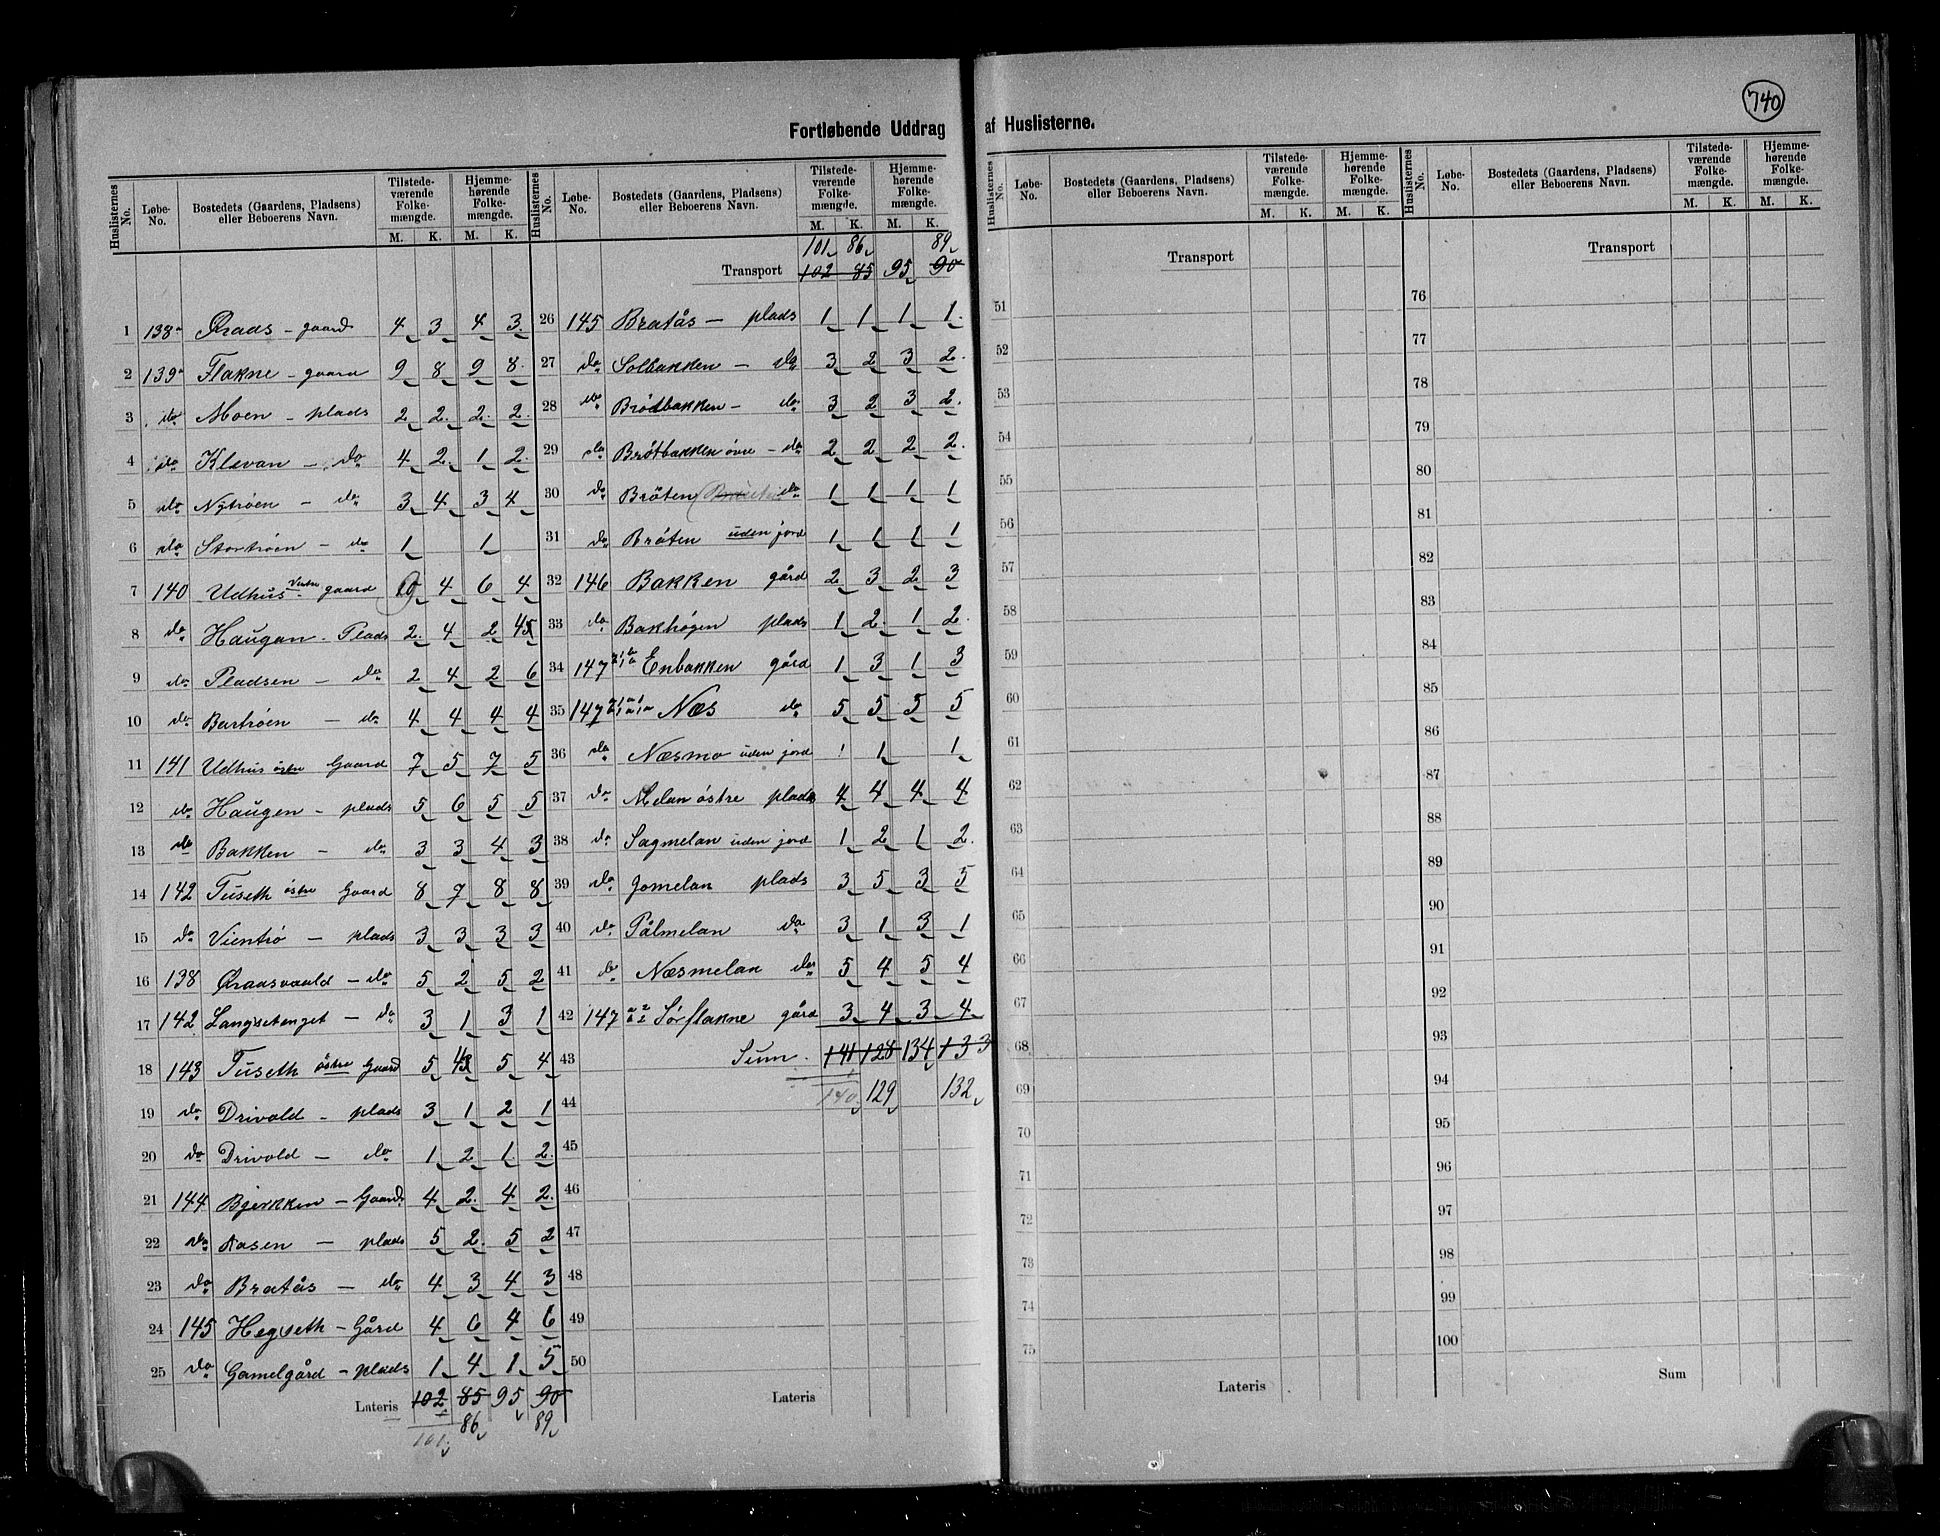 740
Fortløbende Uddrag af Huslisterne.
Huslisternes No. | Løbe-No. | Bostedets (Gaardens, Pladsens) eller Beboerens Navn. | Tilstedeværende Folkemængde. M. K. | Hjemmehørende Folkemængde. M. K.
1 138 Graas - gaard 4 3 4 3
2 139 Flakne - gaard 9 8 9 8
3 do Moen - plads 2 2 2 2
4 do Klevan - do 4 2 1 2
5 do Nytrøen - do 3 4 3 4
6 do Stortrøen - do 1 1
7 140 Udhus vestre gaard 4 6 4
8 do Haugan - Plads 2 4 2
9 do Pladsen - do 2 4 2 6
10 do Bartrøen - do 4 4 4 4
11 141 Udhus östre Gaard 7 5 7 5
12 do Haugen - plads 5 6 5 5
13 do Bakken - do 3 3 4 3
14 142 Tuseth östre Gaard 8 7 8 8
15 do Vientrö - plads 3 3 3 3
16 138 Graasvold - do 5 2 5 2
17 142 Langsetenget - do 3 1 3 1
18 143 Tuseth östre Gaard 5 5 4
19 do Drivold - plads 3 1 2 1
20 do Drivold - do 1 2 1 2
21 144 Bjerkken - Gaard 4 2 4 2
22 do Aasen - plads 5 2 5 2
23 do Bratås - do 4 3 4 3
24 145 Hegseth - Gård 4 6 4 6
25 do Gamelgård - plads 1 4 1 5
Lateris 102 85 95 90
101 86 89
Huslisternes No. | Løbe-No. | Bostedets (Gaardens, Pladsens) eller Beboerens Navn. | Tilstedeværende Folkemængde. M. K. | Hjemmehørende Folkemængde. M. K.
101 86 89
Transport 102 85 95 90
26 145 Bratås - plads 1 1 1 1
27 do Solbakken - do 3 2 3 2
28 do Brödbakken - do 3 2 3 2
29 do Brötbakken övre - do 2 2 2 2
30 do Bröten do 1 1 1 1
31 do Bröten uden jord 1 1 1 1
32 146 Bakken gård 2 3 2 3
33 do Bakhögen plads 1 2 1 2
34 147 Enbakken gård 1 3 1 3
35 147 Næs do 5 5 5 5
36 do Næsmo uden jord 1 1 1
37 do Melan östre plads 4 4 4 4
38 do Sagmelan uden jord 1 2 1 2
39 do Jomelan plads 3 5 3 5
40 do Pålmelan do 3 1 3 1
41 do Næsmelan do 5 4 5 4
42 147 Sørflakne gård 3 4 3 4
43 Sum. 141 128 134 133
44 140 129 132
45
46
47
48
49
50
Lateris
Huslisternes No. | Løbe-No. | Bostedets (Gaardens, Pladsens) eller Beboerens Navn. | Tilstedeværende Folkemængde. M. K. | Hjemmehørende Folkemængde. M. K.
Transport
51
52
53
54
55
56
57
58
59
60
61
62
63
64
65
66
67
68
69
70
71
72
73
74
75
Lateris
Huslisternes No. | Løbe-No. | Bostedets (Gaardens, Pladsens) eller Beboerens Navn. | Tilstedeværende Folkemængde. M. K. | Hjemmehørende Folkemængde. M. K.
Transport
76
77
78
79
80
81
82
83
84
85
86
87
88
89
90
91
92
93
94
95
96
97
98
99
100
Sum